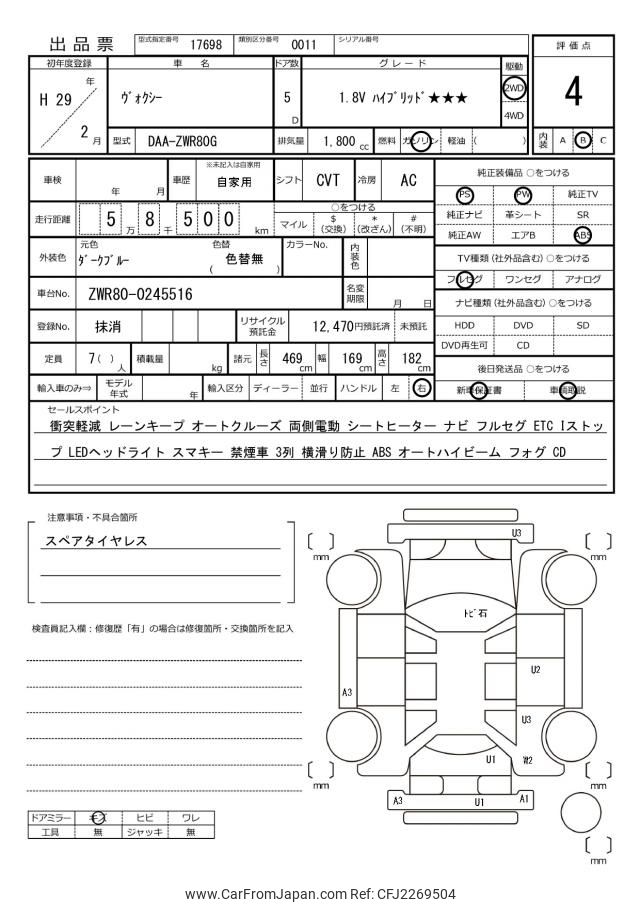 出品票 型式指定番号 17698 類別区分番号 0011 シリアル番号
評価点
4
内装 A B C
初年度登録 車名 ドア数 グレード 駆動
H 29 年 2 月 ヴォクシー 5 D 1.8V ハイブリッド★★★ 2WD 4WD
型式 DAA-ZWR80G 排気量 1,800 cc 燃料 ガソリン 軽油 ( )
車検 年 月 車歴 ※未記入は自家用 自家用 シフト CVT 冷房 AC
走行距離 5 万 8 千 5 0 0 km ○をつける
マイル $ (交換) * (改ざん) # (不明)
外装色 元色 ダークブルー 色替 ( 色替無 ) カラーNo. 内装色
車台No. ZWR80-0245516 名変期限 月 日
登録No. 抹消 リサイクル預託金 12,470円預託済 未預託
定員 7( ) 人 積載量 kg 諸元 長さ 469 cm 幅 169 cm 高さ 182 cm
輸入車のみ⇒ モデル年式 年 輸入区分 ディーラー 並行 ハンドル 左 右
純正装備品 ○をつける
PS PW 純正TV
純正ナビ 革シート SR
純正AW エアB ABS
TV種類 (社外品含む) ○をつける
フルセグ ワンセグ アナログ
ナビ種類 (社外品含む) ○をつける
HDD DVD SD
DVD再生可 CD
後日発送品 ○をつける
新車保証書 車輌取説
セールスポイント
衝突軽減 レーンキープ オートクルーズ 両側電動 シートヒーター ナビ フルセグ ETC Iストッ
プ LEDヘッドライト スマキー 禁煙車 3列 横滑り防止 ABS オートハイビーム フォグ CD
注意事項・不具合箇所
スペアタイヤレス
検査員記入欄：修復歴「有」の場合は修復箇所・交換箇所を記入
ドアミラー キズ ヒビ ワレ
工具 無 ジャッキ 無
U3
[ ] mm
[ ] mm
トビ石
U2
A3
U3
U1 W2
[ ] mm
[ ] mm
A3 U1 A1
[ ] mm
www.CarFromJapan.com Ref: CFJ2269504